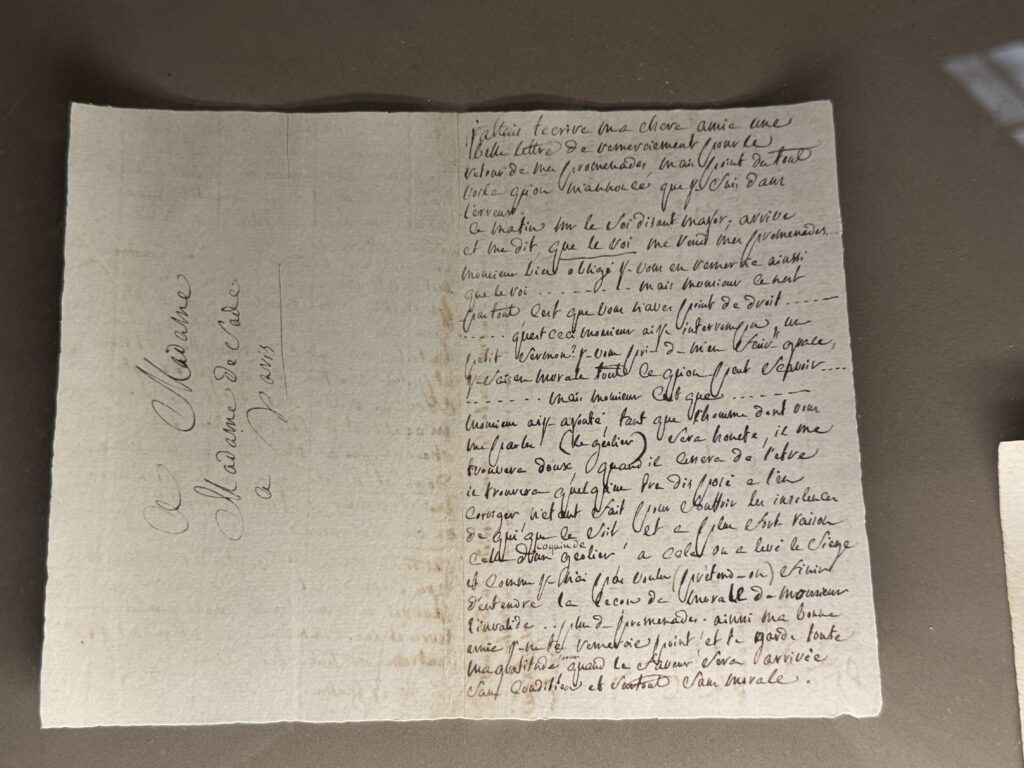 A Madame
Madame de Sade
a paris
j'allais t'ecrire ma chere amie une
belle lettre de remerciement pour le
retour de mes promenades mais point du tout
voila qu'on m'annonce que je suis dans
l'erreur.
ce matin mr le soi disant major, arrive
et me dit, que le roi me rend mes promenades...
monsieur bien obligé je vous en remercie ainsi
que le roi . . . . . . . . . mais monsieur ce n'est
pas tout c'est que vous n'aves point de droit - - - - - -
. . . . . qu'est ceci monsieur ai-je interrompu, un
petit sermon? je vous pri-d-m'en faire grace,
je sais en morale tout ce qu'on peut scavoir . . . .
- - - - - - - - mais monsieur c'est que - - - - - - -
monsieur ai-je ajouté, tant que l'homme dont vous
me parles (le geolier) sera honete, il me
trouvera doux, quand il cessera de l'etre
il trouvera quelqu'un tres disposé a l'en
coriger n'etant fait pour souffrir les insolences
de qui que ce soit et a plus forte raison
celle d'un coquin de geolier a cela on a levé le siege
et comme je n'ai pas voulu (pretend-on) finir
d'entendre la lecon de morale de monsieur
l'invalide . . plus d- promenades. ainsi ma bonne
amie je ne te remercie point et te garde toute
ma gratitude pour quand la faveur sera arrivée
sans condition et surtout sans morale.